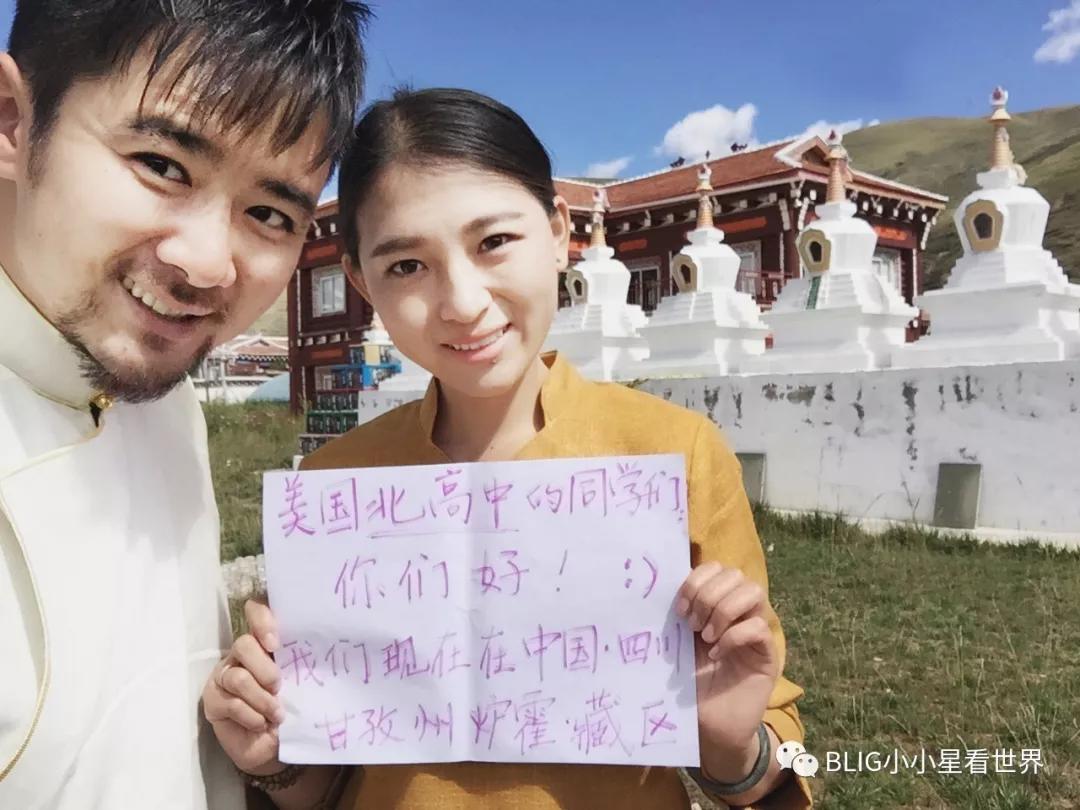 美国北高中的同学们:
你们好! :)
我们现在在中国·四川
甘孜州炉霍·藏区
BLIG小小星看世界